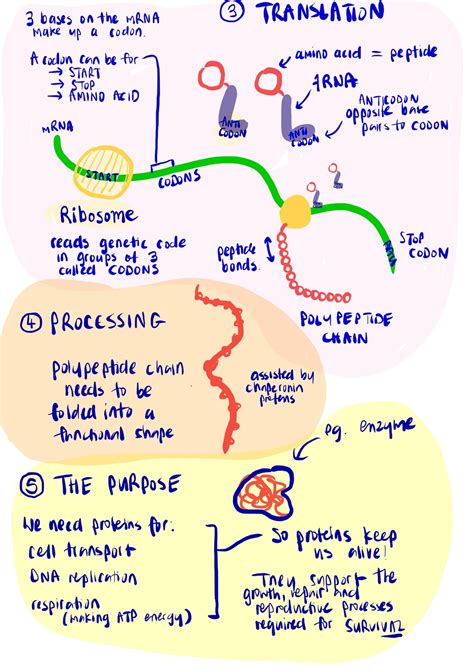 3 bases on the mRNA
make up a codon.
A codon can be for
→ START
→ STOP
→ AMINO ACID
③ TRANSLATION
amino acid = peptide
tRNA
ANTICODON
opposite base
pairs to CODON
ANTI
CODON
ANTI
CODON
mRNA
START
CODONS
Ribosome
reads genetic code
in groups of 3
called CODONS
peptide
bonds.
STOP
CODON
POLYPEPTIDE
CHAIN
④ PROCESSING
polypeptide chain
needs to be
folded into a
functional shape
assisted by
chaperonin
proteins
⑤ THE PURPOSE
eg. enzyme
We need proteins for:
cell transport
DNA replication
respiration
(making ATP energy)
So proteins keep
us alive!
They support the
growth, repair and
reproductive processes
required for SURVIVAL